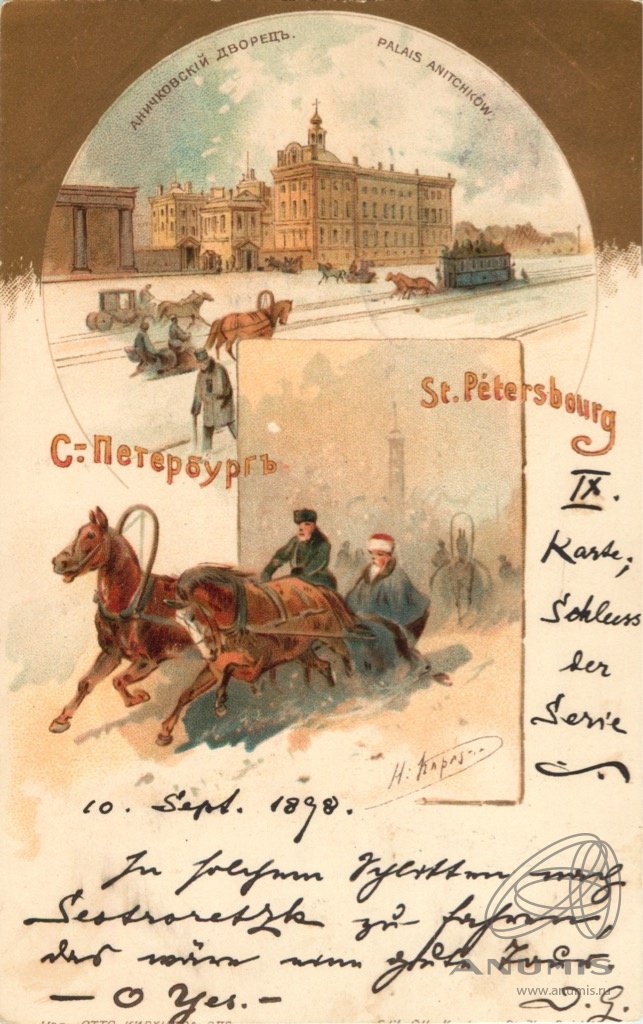 АНИЧКОВСКІЙ ДВОРЕЦЪ.
PALAIS ANITCHKOW.
St. Pétersbourg
С-Петербургъ
IX.
Karte;
Schluss
der
Serie
10. Sept. 1898.
In solchem Schlitten nach
Sestroretzk zu fahren,
das wäre eine gute Tour.
— O Yes. —
D. G.
ANUMIS
www.anumis.ru